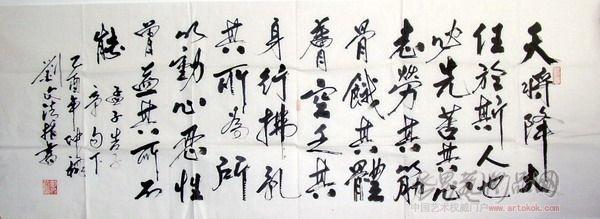 天將降大
任於斯人也
必先苦其心
志勞其筋
骨餓其體
膚空乏其
身行拂乱
其所為所
以動心忍性
曾益其所不
能
孟子告子
章句下
乙酉年仲秋
劉文法
中国艺术权威门户 www.artokok.com